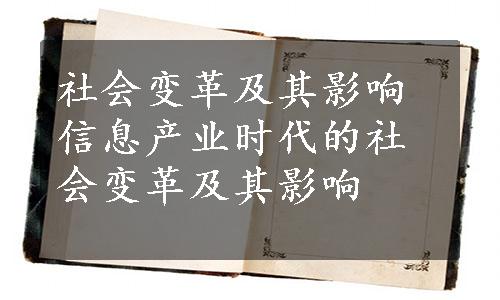 社会变革及其影响
信息产业时代的社
会变革及其影响